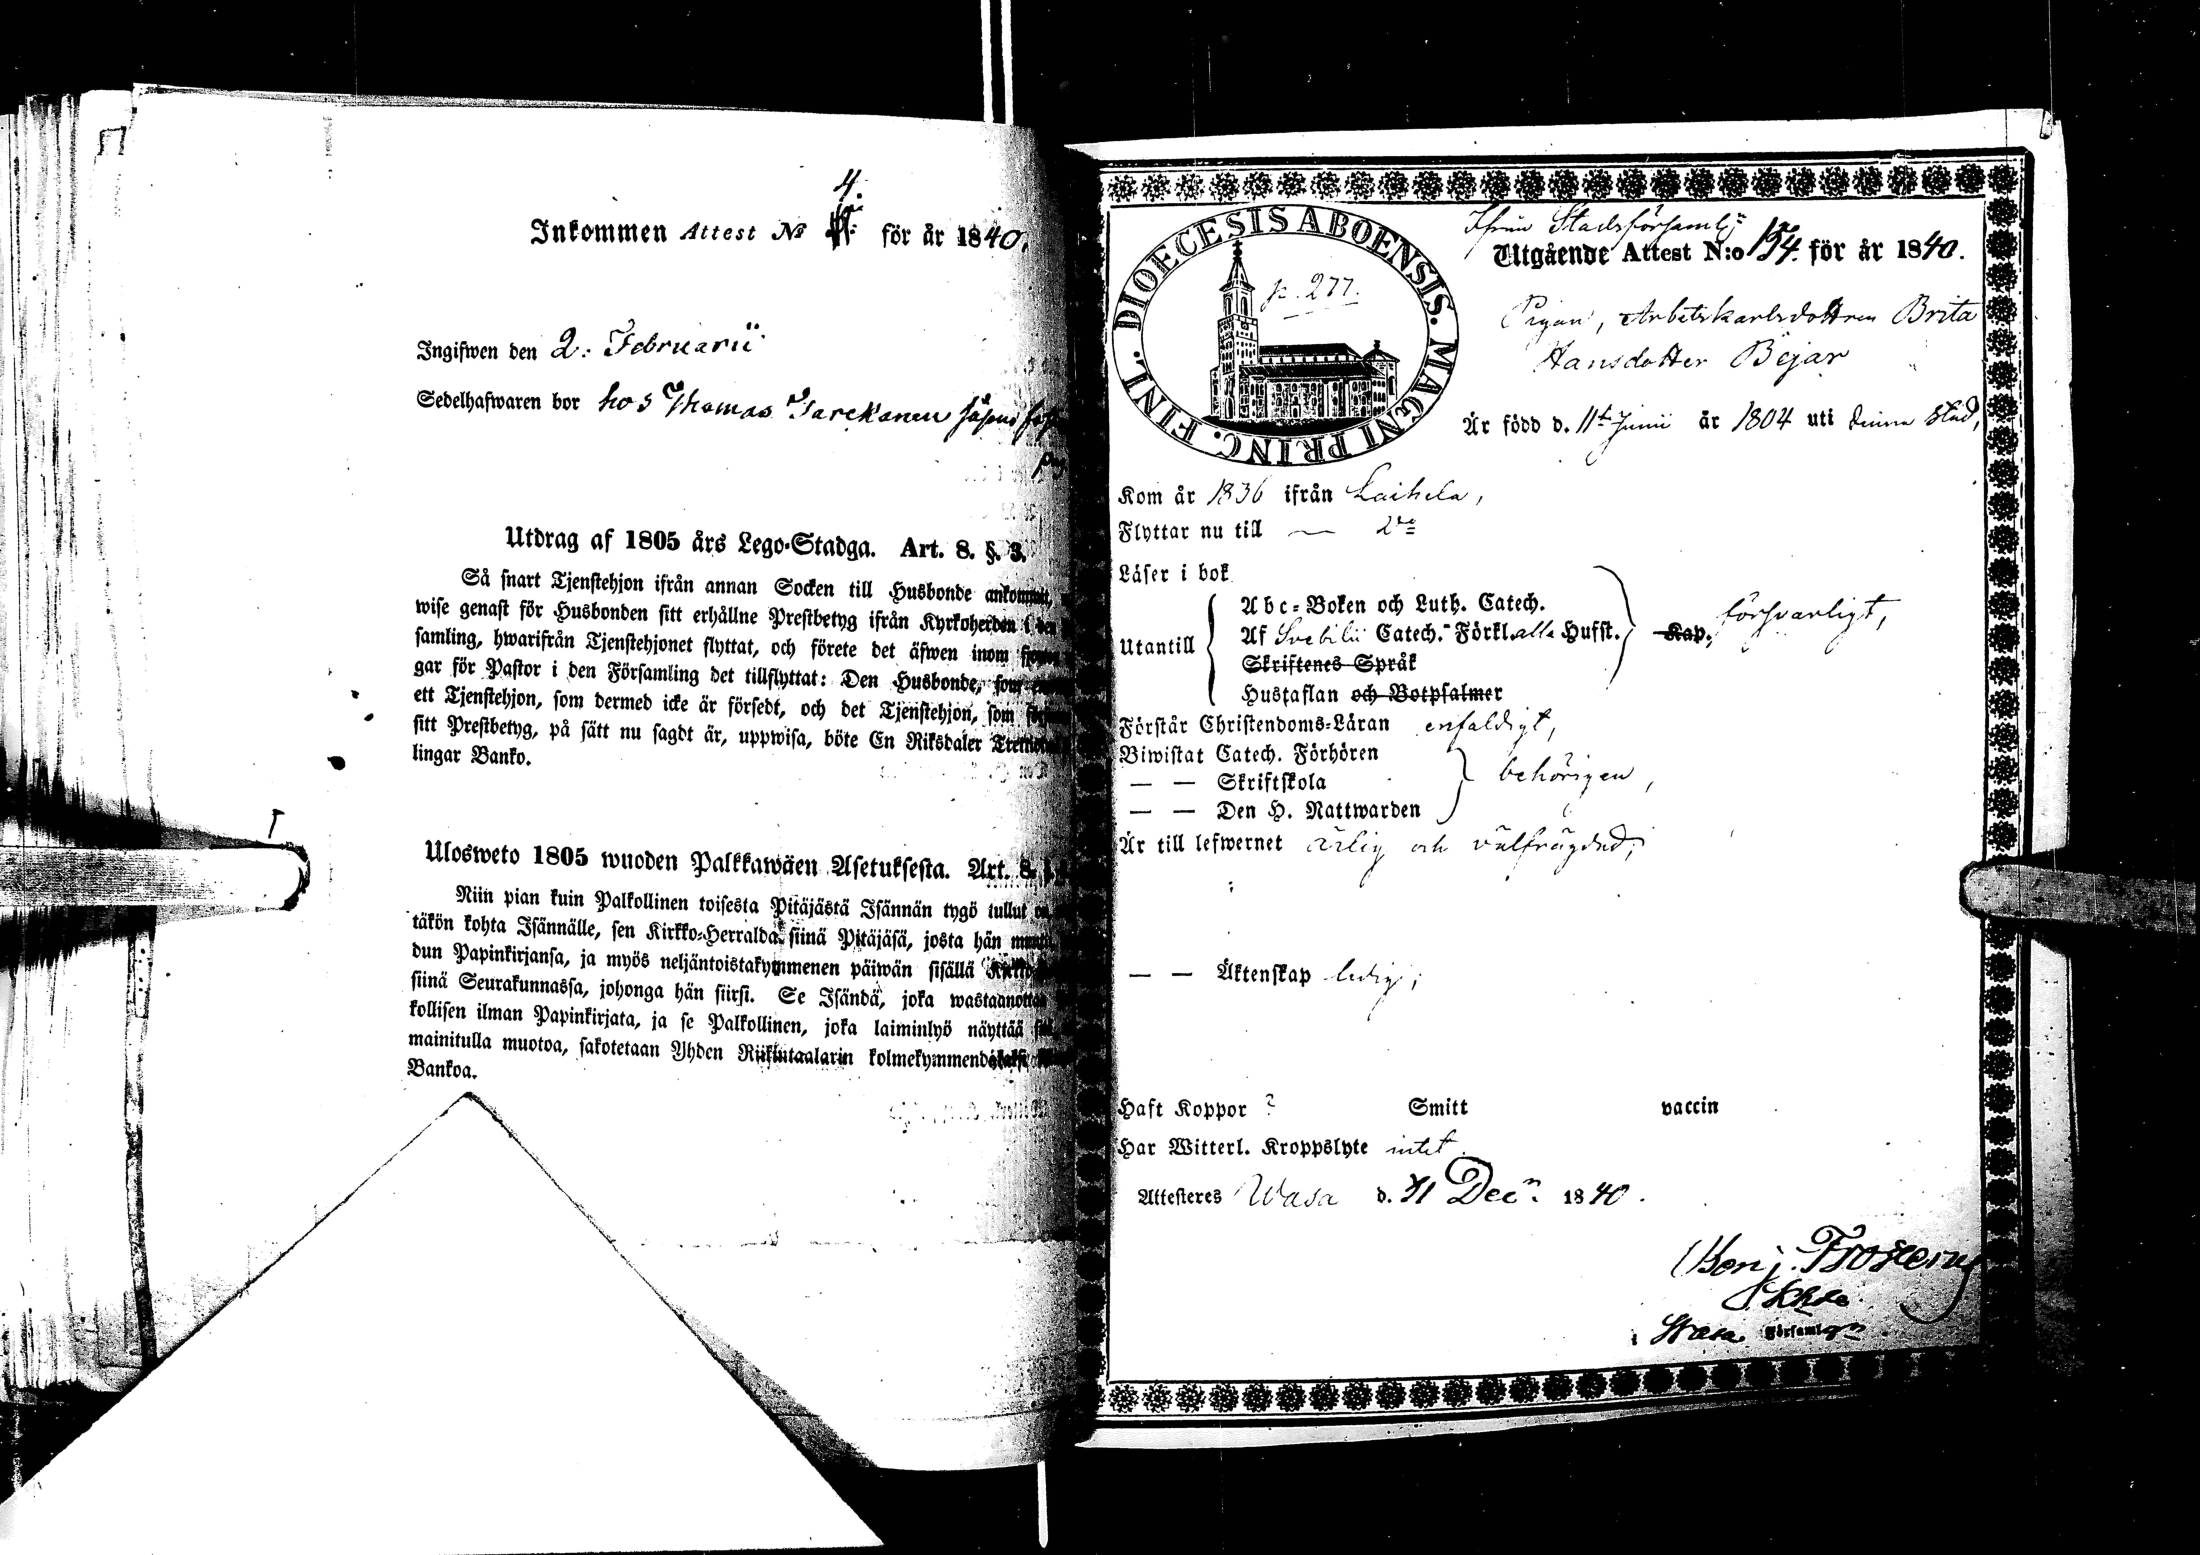 4.
Inkommen Attest No för år 1840.
Ingifwen den 2: Februarii
Sedelhafwaren bor hos Thomas
Utdrag af 1805 års Lego-Stadga. Art. 8. §. 3.
Så snart Tjenstehjon ifrån annan Socken till Husbonde ankommit,
wise genast för Husbonden sitt erhållne Prestbetyg ifrån Kyrkoherden i den
samling, hwarifrån Tjenstehjonet flyttat, och förete det äfwen inom
gar för Pastor i den Församling det tillflyttat: Den Husbonde, som
ett Tjenstehjon, som dermed icke är försedt, och det Tjenstehjon, som
sitt Prestbetyg, på sätt nu sagdt är, uppwisa, böte En Riksdaler
lingar Banko.
Ulosweto 1805 wuoden Palkkawäen Asetuksesta. Art. 8.
Niin pian kuin Palkollinen toisesta Pitäjästä Isännän tygö tullut on
täkön kohta Isännälle, sen Kirkko-Herralda siinä Pitäjäsä, josta hän
dun Papinkirjansa, ja myös neljäntoistakymmenen päiwän sisällä
siinä Seurakunnassa, johonga hän siirsi. Se Isändä, joka
kollisen ilman Papinkirjata, ja se Palkollinen, joka laiminlyö näyttää
mainitulla muotoa, sakotetaan Yhden Riikintaalarin
Bankoa.
DIOECESIS ABOENSIS. MAGNI PRINC. FINL.
p. 277.
Ifrån Stadsförsaml:
Utgående Attest N:o 154. för år 1840.
Pigan, Arbetskarlsdottren Brita
Hansdotter Bejar
Är född d. 11te Junii år 1804 uti denna stad,
Kom år 1836 ifrån Laihela,
Flyttar nu till —
Läser i bok
Abc-Boken och Luth. Catech.
Utantill Af Svebilii Catech. Förkl. alla Hufst. Kap. försvarligt,
Skriftenes Språk
Hustaflan och Botpsalmer
Förstår Christendoms-Läran enfaldigt,
Biwistat Catech. Förhören
— — Skriftskola behörigen,
— — Den H. Nattwarden
Är till lefwernet ärlig och välfrägdad;
— — Äktenskap ledig;
Haft Koppor ? Smitt vaccin
Har Witterl. Kroppslyte intet.
Attesteres Wasa d. 31 Decr. 1840.
Benj. Frosterus
i Wasa Församlgn